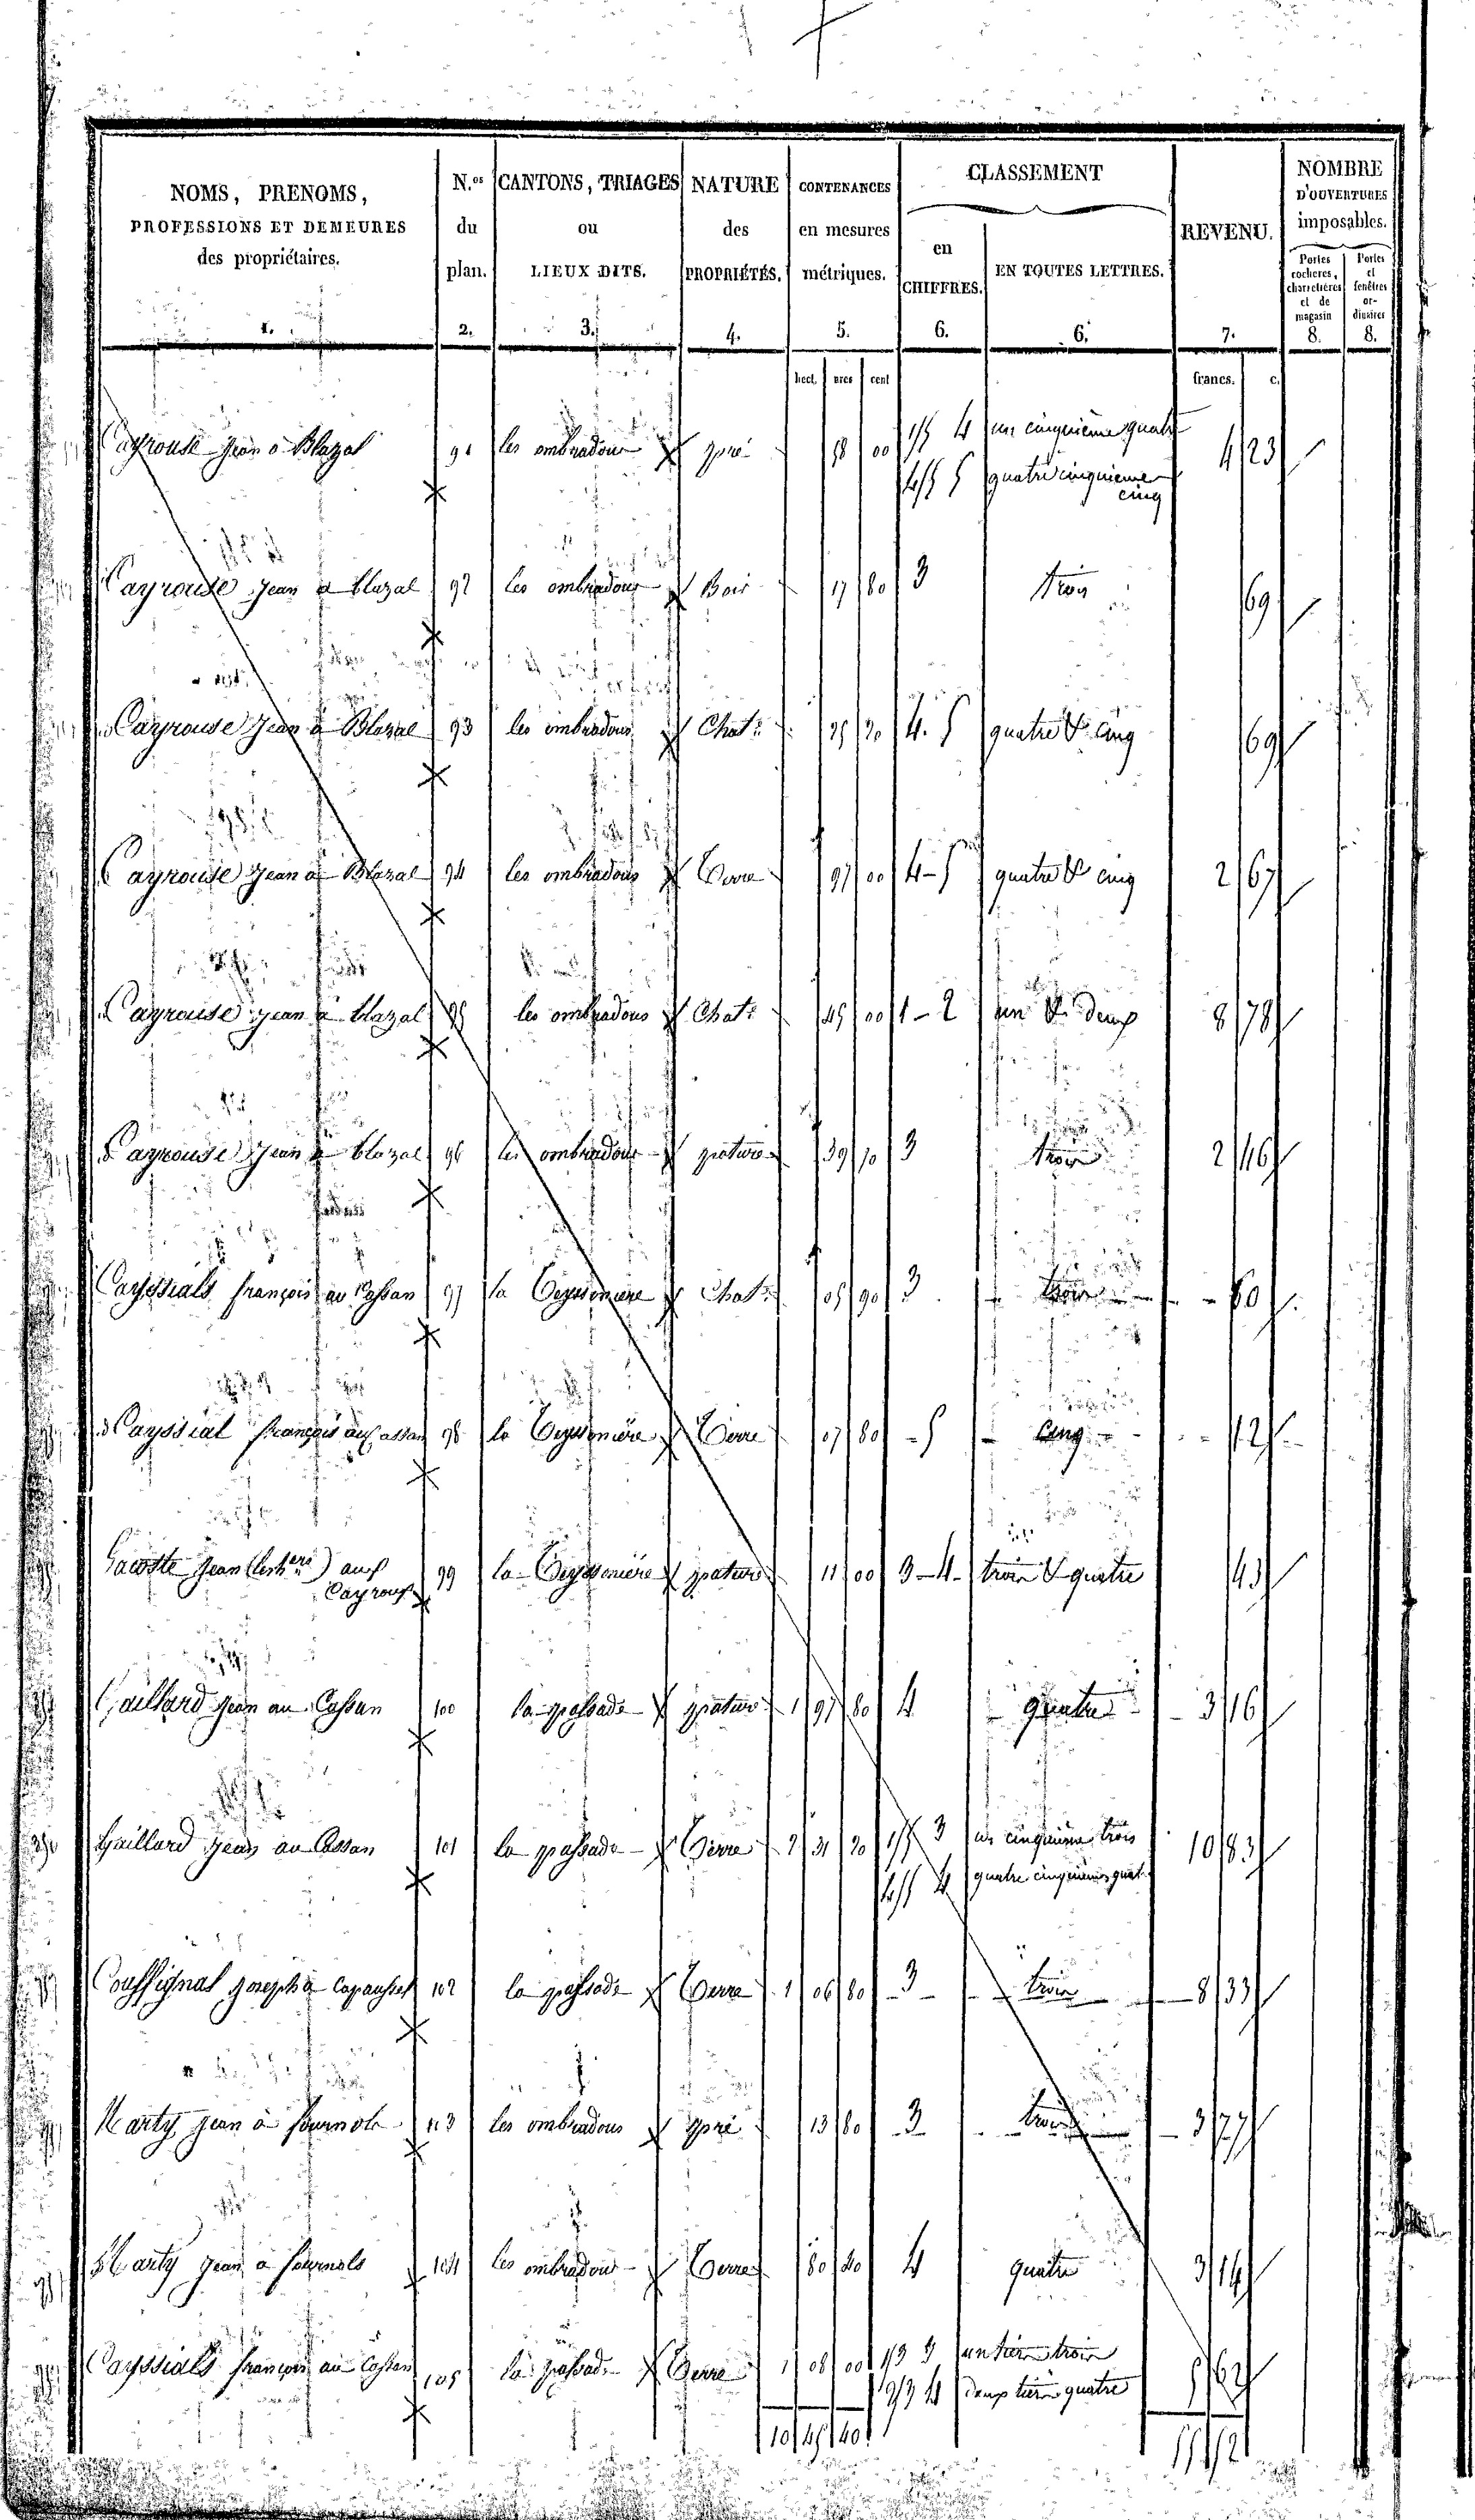 NOMS, PRENOMS, PROFESSIONS ET DEMEURES des propriétaires. 1.
N.os du plan. 2.
CANTONS, TRIAGES ou LIEUX DITS. 3.
NATURE des PROPRIÉTÉS. 4.
CONTENANCES en mesures métriques. 5.
CLASSEMENT
en CHIFFRES. 6.
EN TOUTES LETTRES. 6.
REVENU. 7.
NOMBRE D'OUVERTURES imposables.
Portes cochères, charretières et de magasin 8.
Portes et fenêtres ordinaires 8.
hect. ares cent francs. c.
Cayrouse Jean à Blazal 91 les ombradous pré 18 00 1/5 4 un cinquième quatre 4 23
4/5 5 quatre cinquième cinq
Cayrouse Jean à blazal 92 les ombradous Bois 17 80 3 trois 69
Cayrouse Jean à Blazal 93 les ombradous Chat. 25 20 4. 5 quatre & cinq 69
Cayrouse Jean à Blazal 94 les ombradous Terre 97 00 4-5 quatre & cinq 2 67
Cayrouse Jean à blazal 95 les ombradous Chat. 45 00 1-2 un & deux 8 78
Cayrouse Jean à blazal 96 les ombradous pature 39 10 3 trois 2 46
Cayssials françois au Cassan 97 la Teyssonière Chat. 05 90 3 trois 60
Cayssial françois au Cassan 98 la Teyssonière Terre 07 80 5 Cinq 12
Lacoste Jean (les hers) aux Cayroux 99 la Teyssonière pature 11 00 3-4 trois & quatre 43
Gaillard Jean au Cassan 100 la passade pature 1 97 80 4 quatre 3 16
Gaillard Jean au Cassan 101 la passade Terre 2 31 20 1/5 3 un cinquième trois 10 83
4/5 4 quatre cinquièmes quat.
Couffignal Joseph à 102 la passade Terre 1 06 80 3 trois 8 33
Marty Jean à fournols 103 les ombradous pré 13 80 3 trois 3 77
Marty Jean à fournols 104 les ombradous Terre 80 40 4 quatre 3 14
Cayssials françois au Cassan 105 la passade Terre 1 08 00 1/3 3 un tiers trois 5 62
2/3 4 deux tiers quatre
10 45 40 55 52